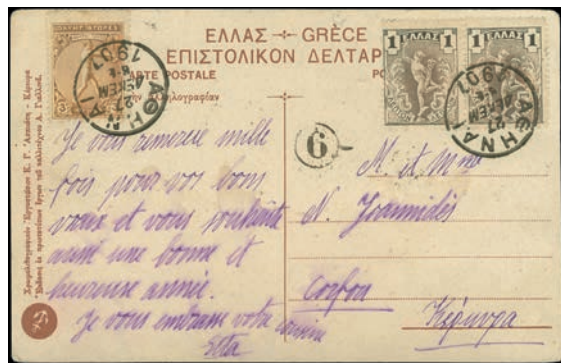 ΕΛΛΑΣ — GRÈCE
ΕΠΙΣΤΟΛΙΚΟΝ ΔΕΛΤΑΡ
CARTE POSTALE
PO
1 ΕΛΛΑΣ 1
1 ΕΛΛΑΣ
ΑΘΗΝΑΙ
27
ΔΕΚΕΜ
1901
ΑΘΗΝΑΙ
27
ΔΕΚΕΜ
1901
6
Je vous remercie mille
fois pour vos bons
vœux et vous souhaite
aussi une bonne et
heureuse année.
Je vous embrasse votre cousine
M. et Mme
N. Joannidès
Corfou
Κέρκυρα